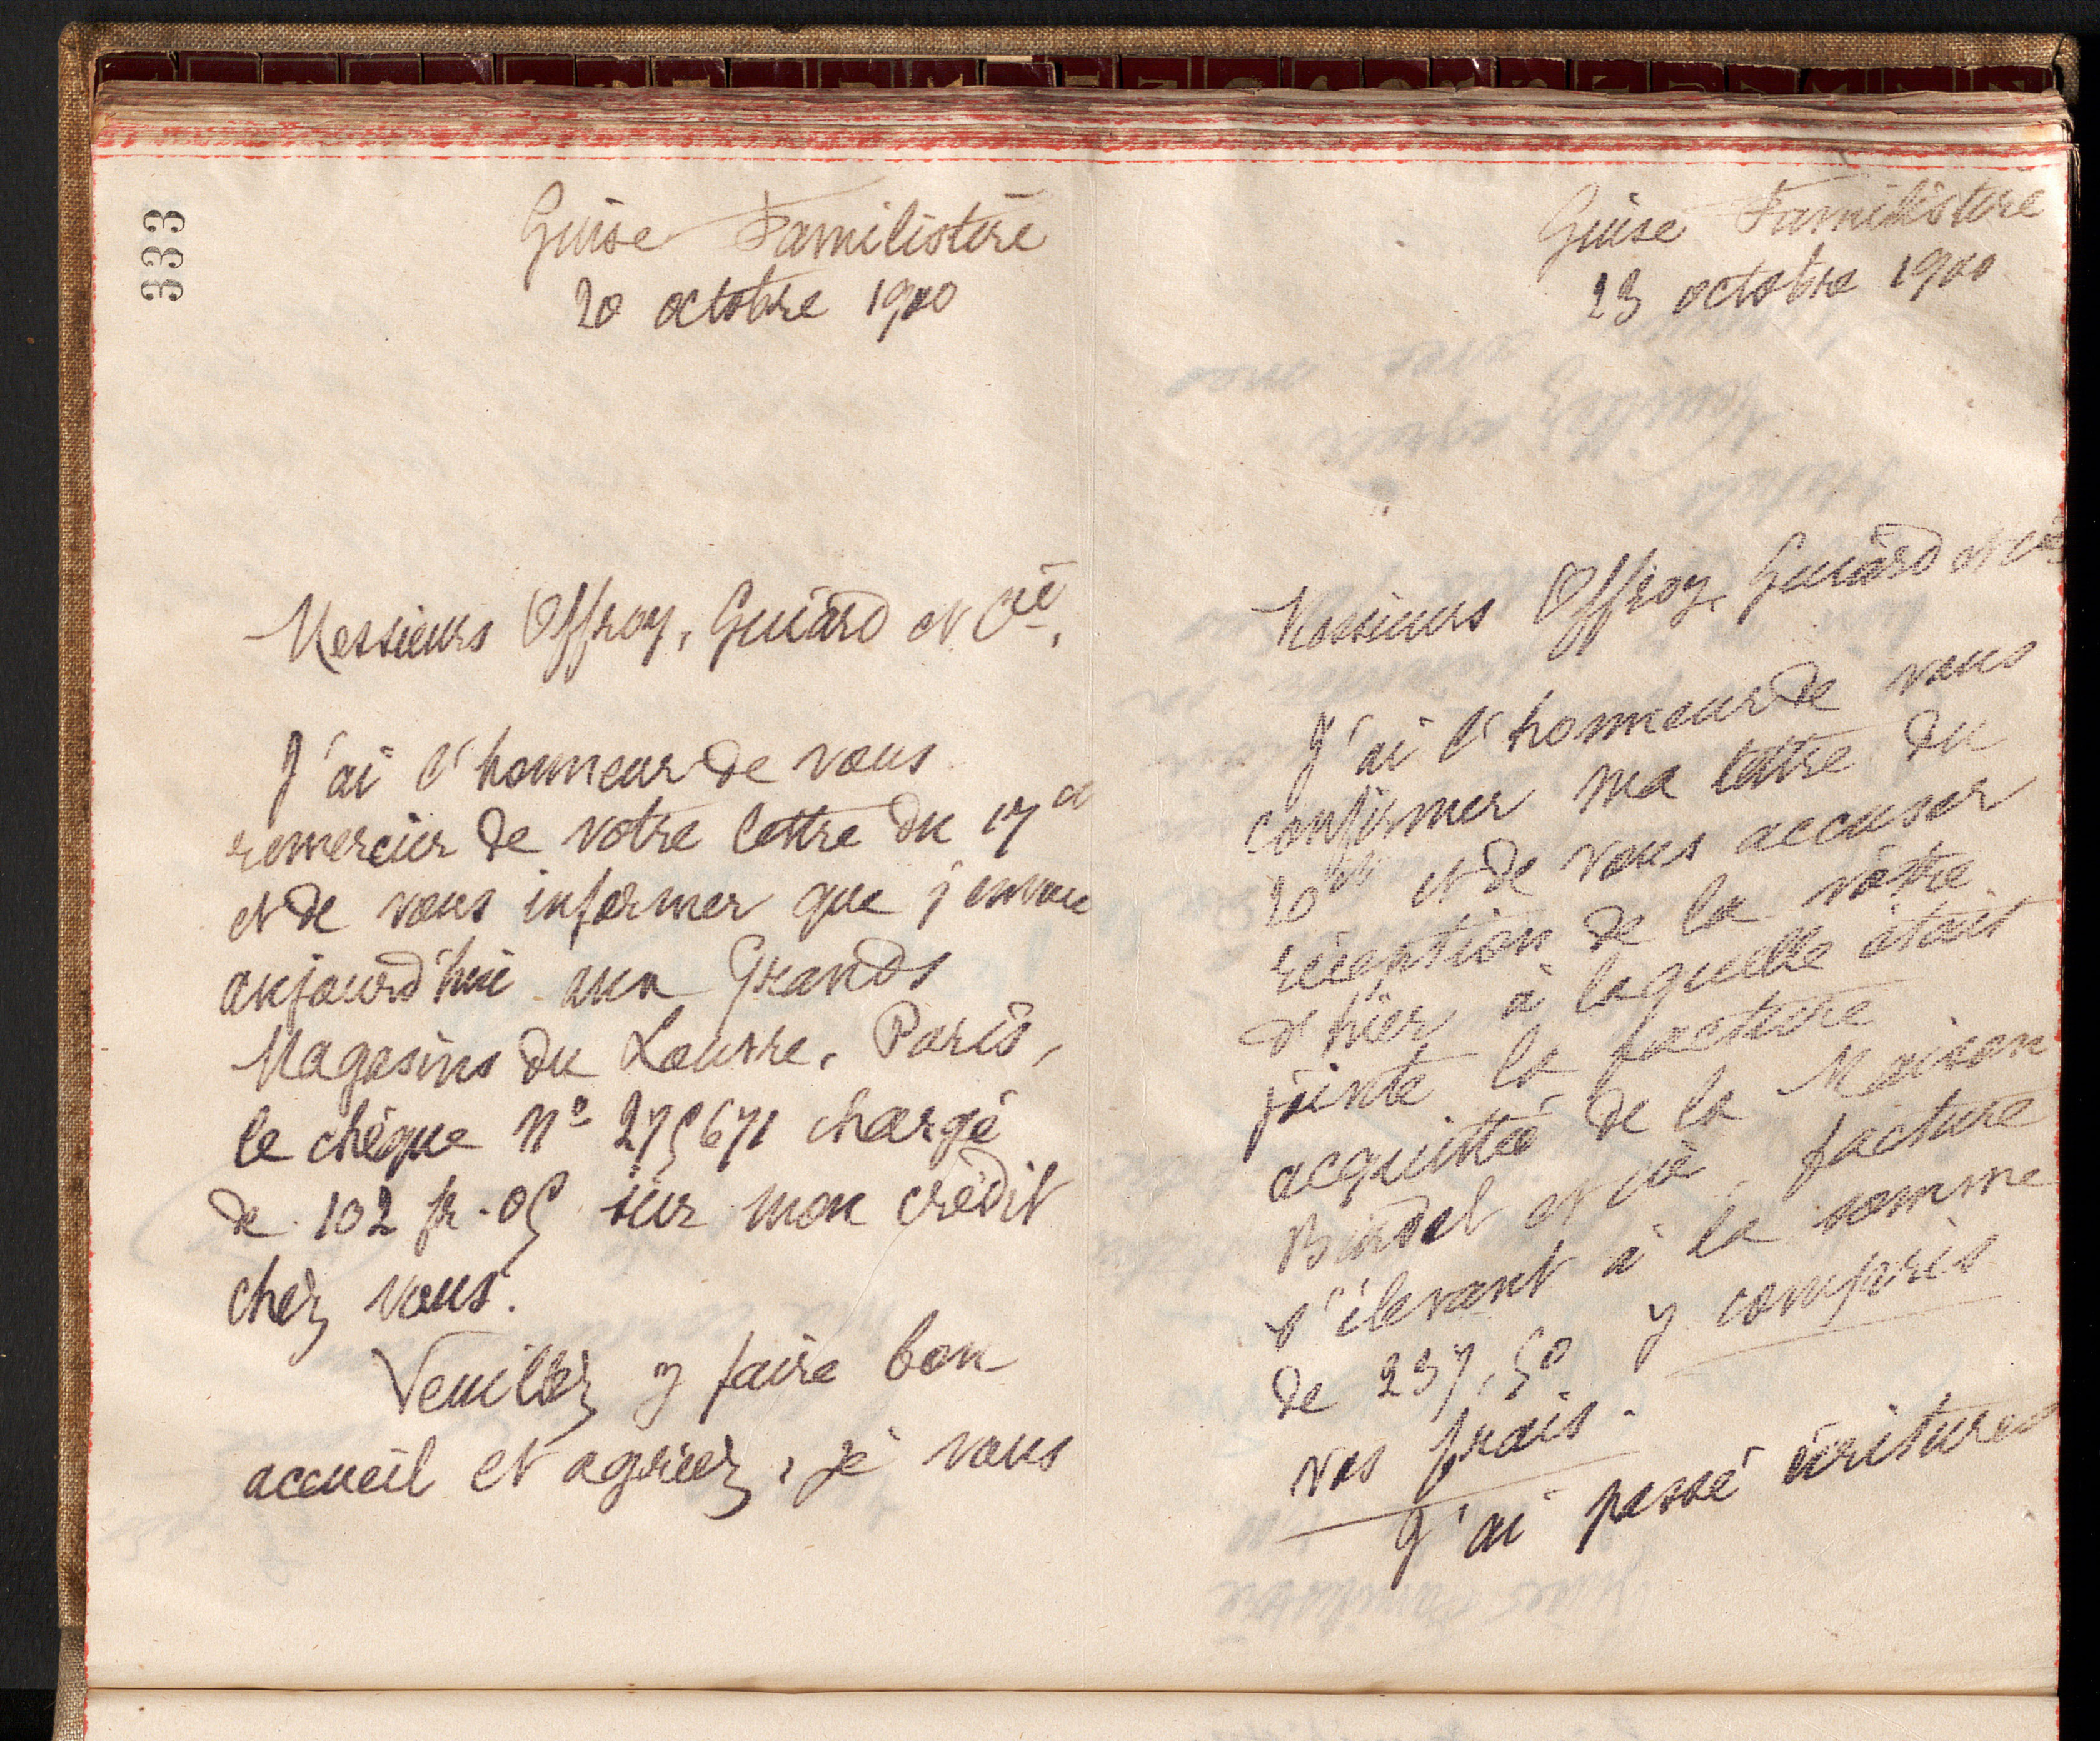 333
Guise Familistère
20 octobre 1900
Messieurs Offroy, Guiard et Cie,
J'ai l'honneur de vous
remercier de votre lettre du 17 ct
et de vous informer que j'envoie
aujourd'hui aux Grands
Magasins du Louvre, Paris,
le chèque No 275671 chargé
de 102 fr. 05 sur mon crédit
chez vous.
Veuillez y faire bon
accueil et agréer, je vous
Guise Familistère
23 octobre 1900
Messieurs Offroy, Guiard et Cie
J'ai l'honneur de vous
confirmer ma lettre du
20 ct et de vous accuser
réception de la vôtre
d'hier, à laquelle était
jointe la facture
acquittée de la Maison
et Cie, facture
s'élevant à la somme
de 237,50 y compris
vos frais.
J'ai passé écritures